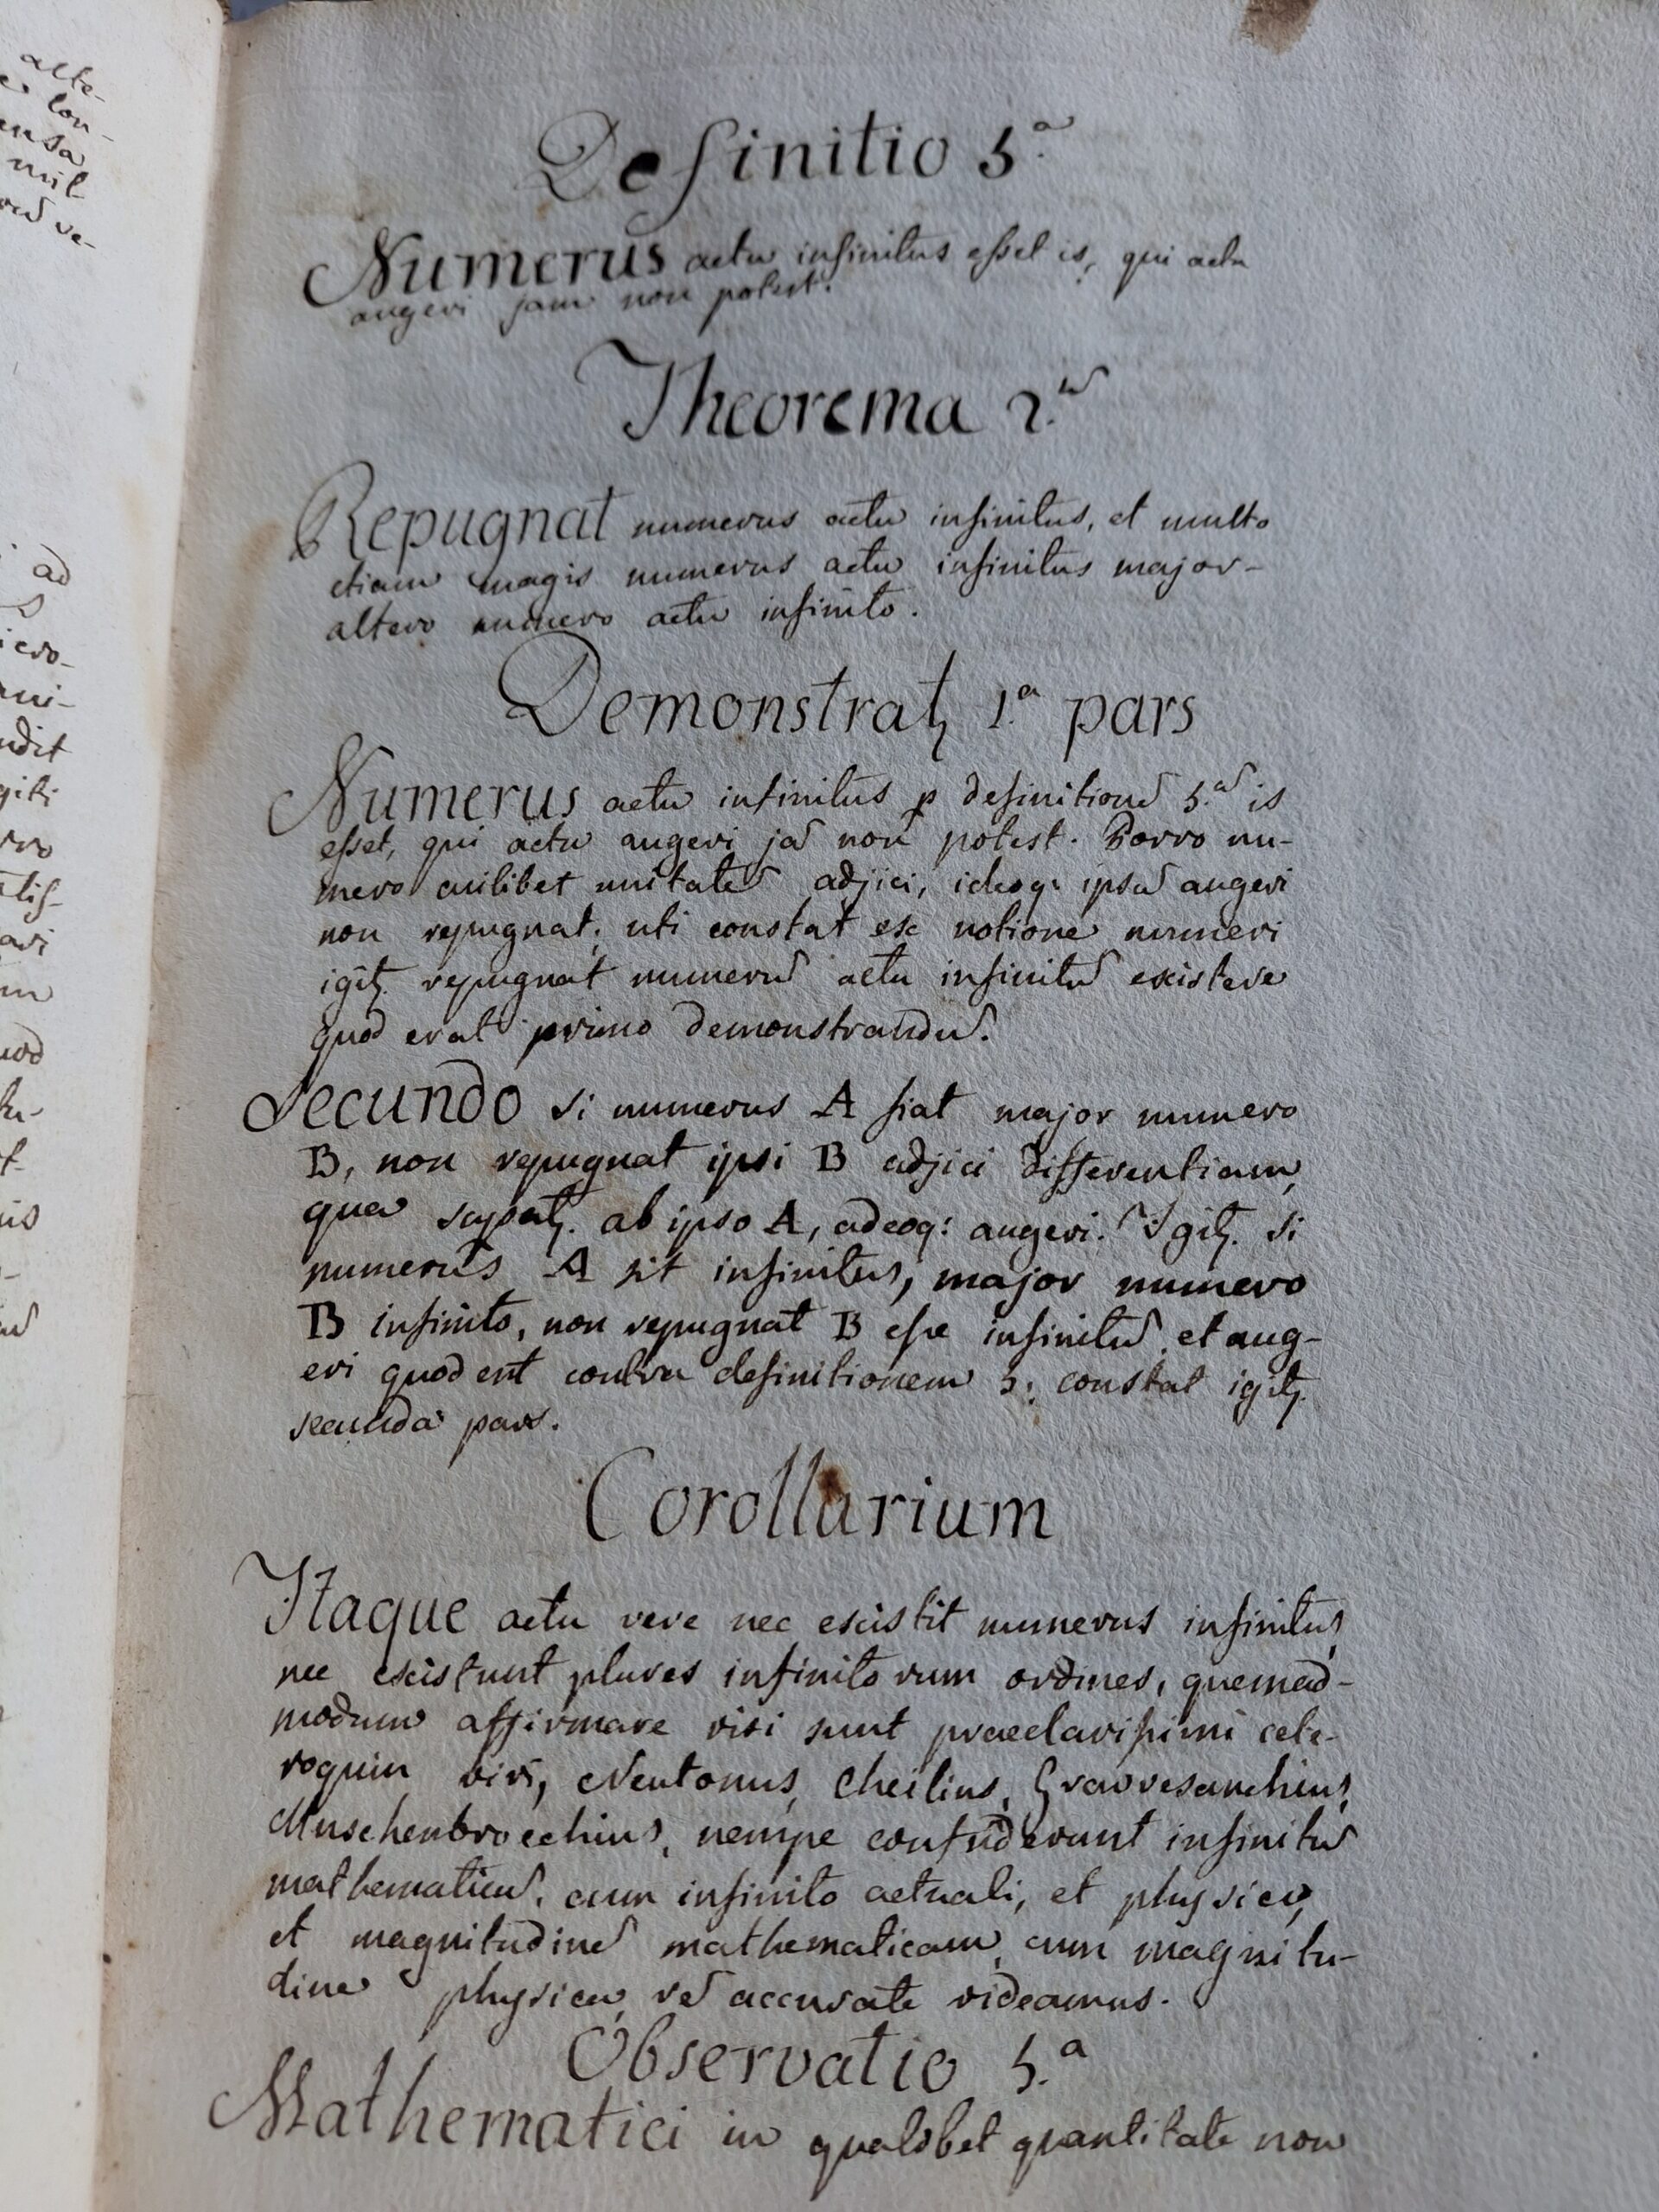 Definitio 5.a
Numerus actu infinitus esset is, qui actu
augeri jam non potest.
Theorema 2.
Repugnat numerus actu infinitus, et multo
etiam magis numerus actu infinitus major
altero numero actu infinito.
Demonstrat 1.a pars
Numerus actu infinitus p definitione 5.a is
esset, qui actu augeri ja non potest. Porro nu-
mero cuilibet unitate adjici, ideoq: ipsu augeri
non repugnat, uti constat ex notione numeri
igit. repugnat numeru actu infinitu existere
quod erat primo demonstrandu.
Secundo si numerus A fiat major numero
B, non repugnat ipsi B adjici differentiam,
qua ab ipso A, adeoq: augeri. Igit. si
numerus A sit infinitus, major numero
B infinito, non repugnat B esse infinitu et aug-
eri quod est contra definitionem 5: constat igit.
secunda pars.
Corollarium
Itaque actu vere nec existit numerus infinitus,
nec existunt plures infinitorum ordines, quemad-
modum affirmare visi sunt praeclarissimi cete-
roquin viri, Neutonus, Cheilius, Gravvesanchius,
Muschenbroechius, nempe confuderunt infinitu
mathematicu, cum infinito actuali, et physico,
et magnitudine mathematicam, cum magnitu-
dine physica, accurate videamus.
Observatio 5.a
Mathematici in qualibet quantitate non
ad